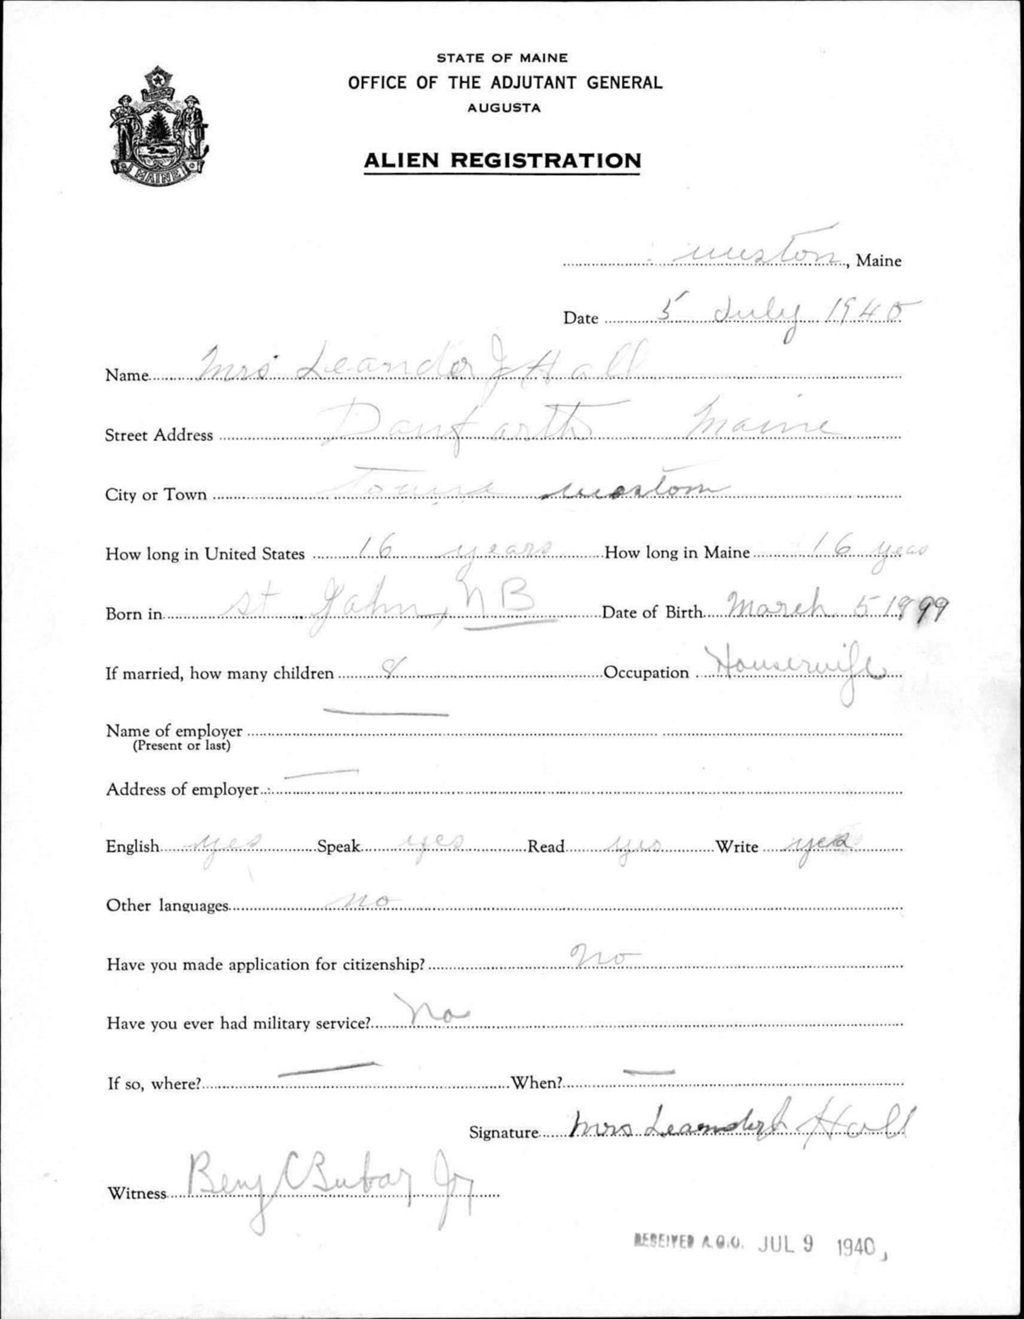 STATE OF MAINE
OFFICE OF THE ADJUTANT GENERAL
AUGUSTA
MAINE
ALIEN REGISTRATION
Weston, Maine
Date 5 July 1940
Name Mrs Leander J Hall
Street Address Danforth Maine
City or Town Towne Weston
How long in United States 16 years How long in Maine 16 yeas
Born in St John, NB Date of Birth March 5 1899
If married, how many children 8 Occupation Housewife
Name of employer —
(Present or last)
Address of employer —
English yes Speak yes Read yes Write yes
Other languages no
Have you made application for citizenship? no
Have you ever had military service? No
If so, where? — When? —
Signature Mrs Leander J Hall
Witness Benj C Bubar Jr
RECEIVED A.G.O. JUL 9 1940